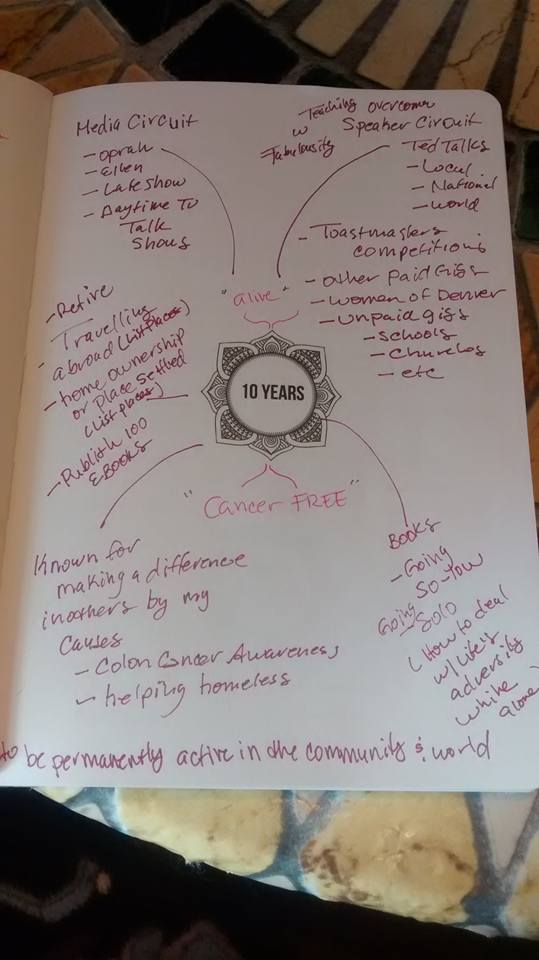 Media Circuit
- Oprah
- Ellen
- Late Show
- Daytime TV
Talk
Shows
Teaching overcome
w
Fabulousity
Speaker Circuit
Ted Talks
- Local
- National
- World
- Toastmasters
competitions
- other Paid Gigs
- women of Denver
- unpaid gigs
- schools
- churches
- etc
"alive"
10 YEARS
"Cancer FREE"
- Retire
- Travelling
abroad (list places)
- home ownership
or place settled
(list places)
- Publish 100
EBOOKS
Known for
making a difference
in others by my
causes
- Colon Cancer Awareness
- helping homeless
BOOKS
- Going
So-low
Going
- Solo
(How to deal
w/ life's
adversity
while
alone)
to be permanently active in the community & world